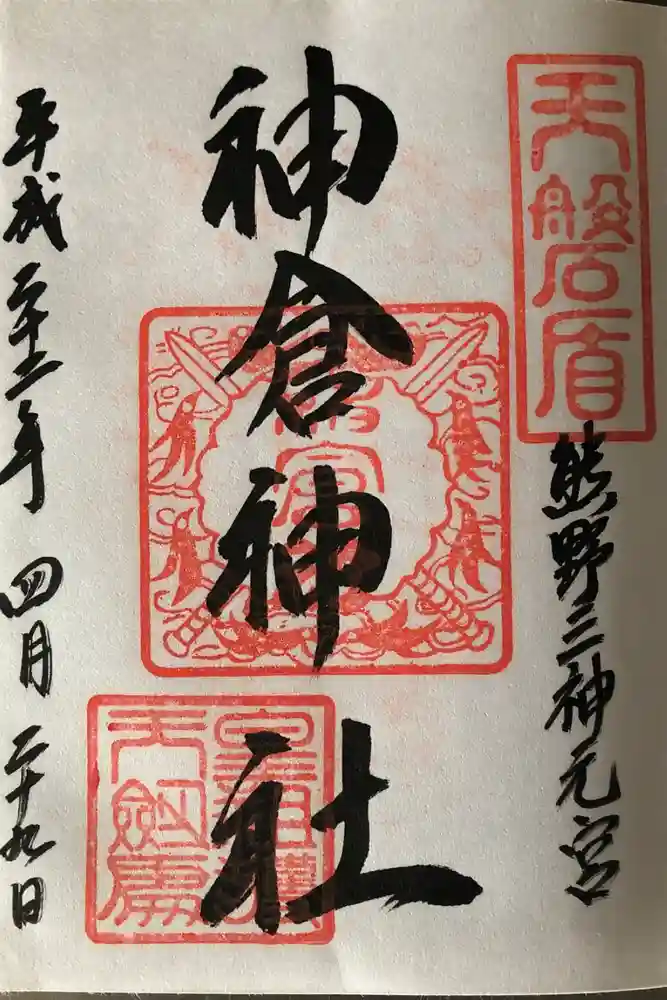 天磐盾
熊野三神元宮
神倉神社
平成二十二年 四月二十九日